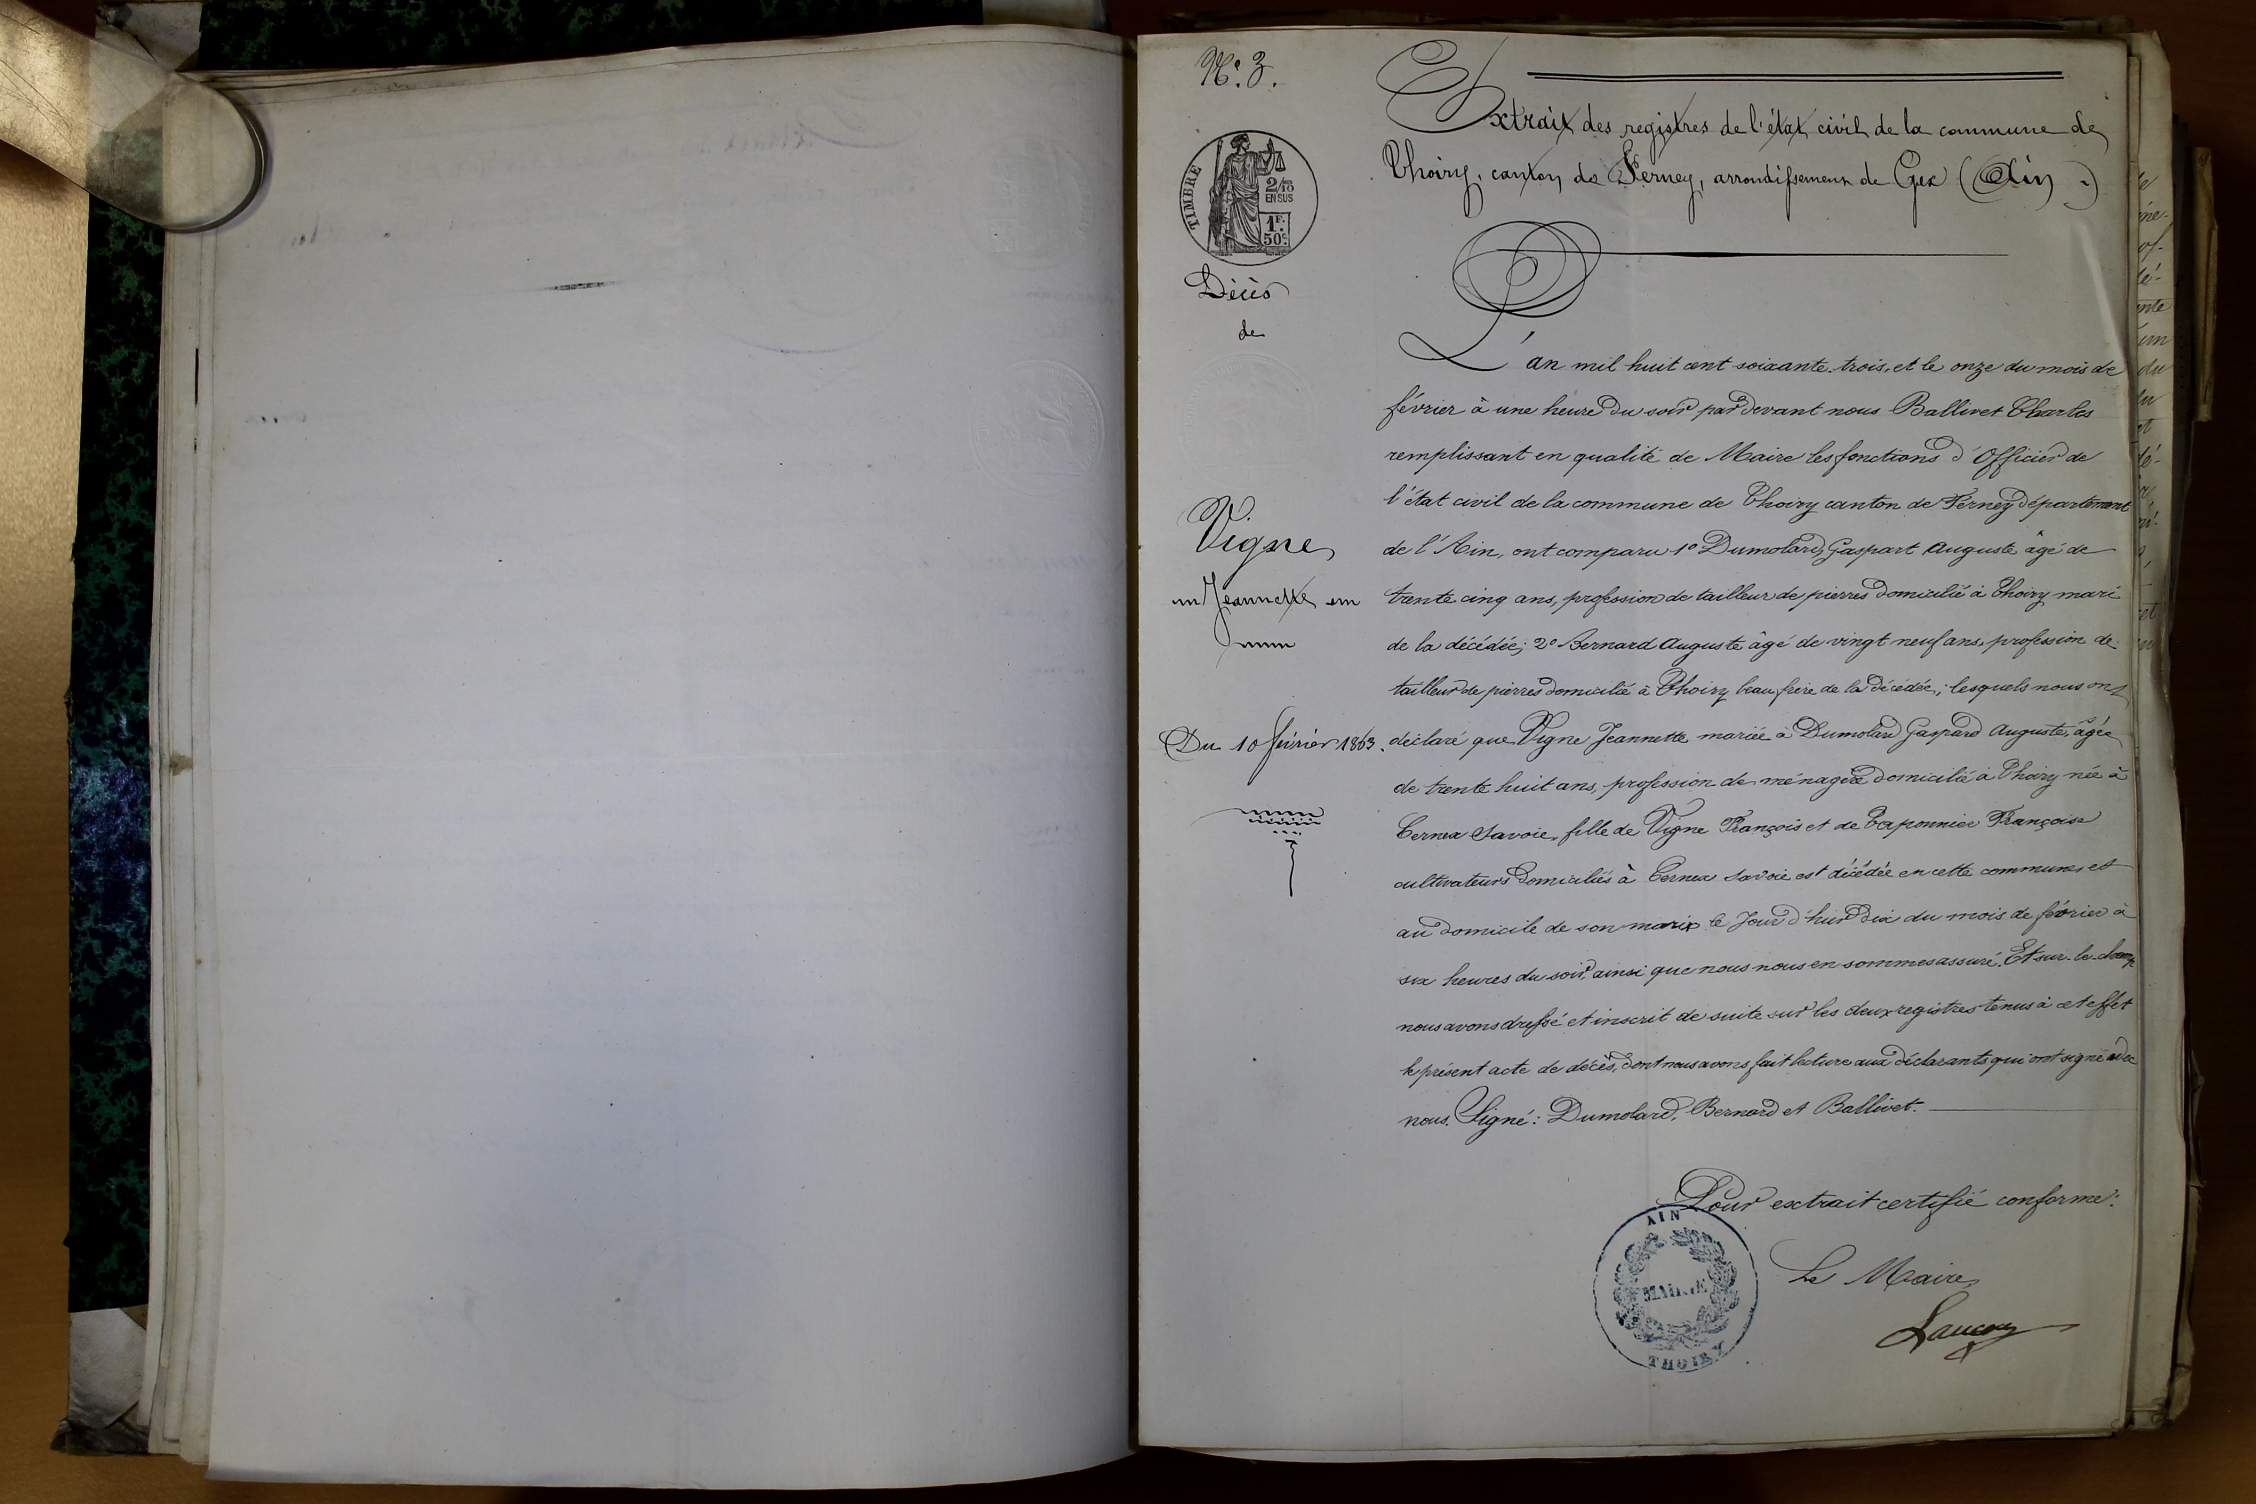 N.° 3.
Extrait des registres de l'état civil de la commune de
Thoiry, canton de Ferney, arrondissement de Gex (Ain.)
TIMBRE
2/10
EN SUS
1F.
50c.
Décès
de
Vigne
Jeannette
Du 10 février 1863.
L'an mil huit cent soixante-trois, et le onze du mois de
février à une heure du soir par devant nous Ballivet Charles
remplissant en qualité de Maire les fonctions d'Officier de
l'état civil de la commune de Thoiry canton de Ferney département
de l'Ain, ont comparu 1° Dumolard, Gaspart Auguste âgé de
trente cinq ans, profession de tailleur de pierres domicilié à Thoiry mari
de la décédée; 2° Bernard Auguste âgé de vingt neuf ans, profession de
tailleur de pierres domicilié à Thoiry beau frère de la décédée; lesquels nous ont
déclaré que Vigne Jeannette mariée à Dumolard Gaspard Auguste, âgée
de trente huit ans, profession de ménagère domicilié à Thoiry née à
Cernex Savoie, fille de Vigne François et de Taponnier Françoise
cultivateurs domiciliés à Cernex Savoie est décédée en cette commune et
au domicile de son mari le jour d'hier dix du mois de février à
six heures du soir, ainsi que nous nous en sommes assuré. Et sur-le-champ
nous avons dressé et inscrit de suite sur les deux registres tenus à cet effet
le présent acte de décès, dont nous avons fait lecture aux déclarants qui ont signé avec
nous. Signé: Dumolard, Bernard et Ballivet.
Pour extrait certifié conforme:
Le Maire,
AIN
MAIRIE
THOIRY